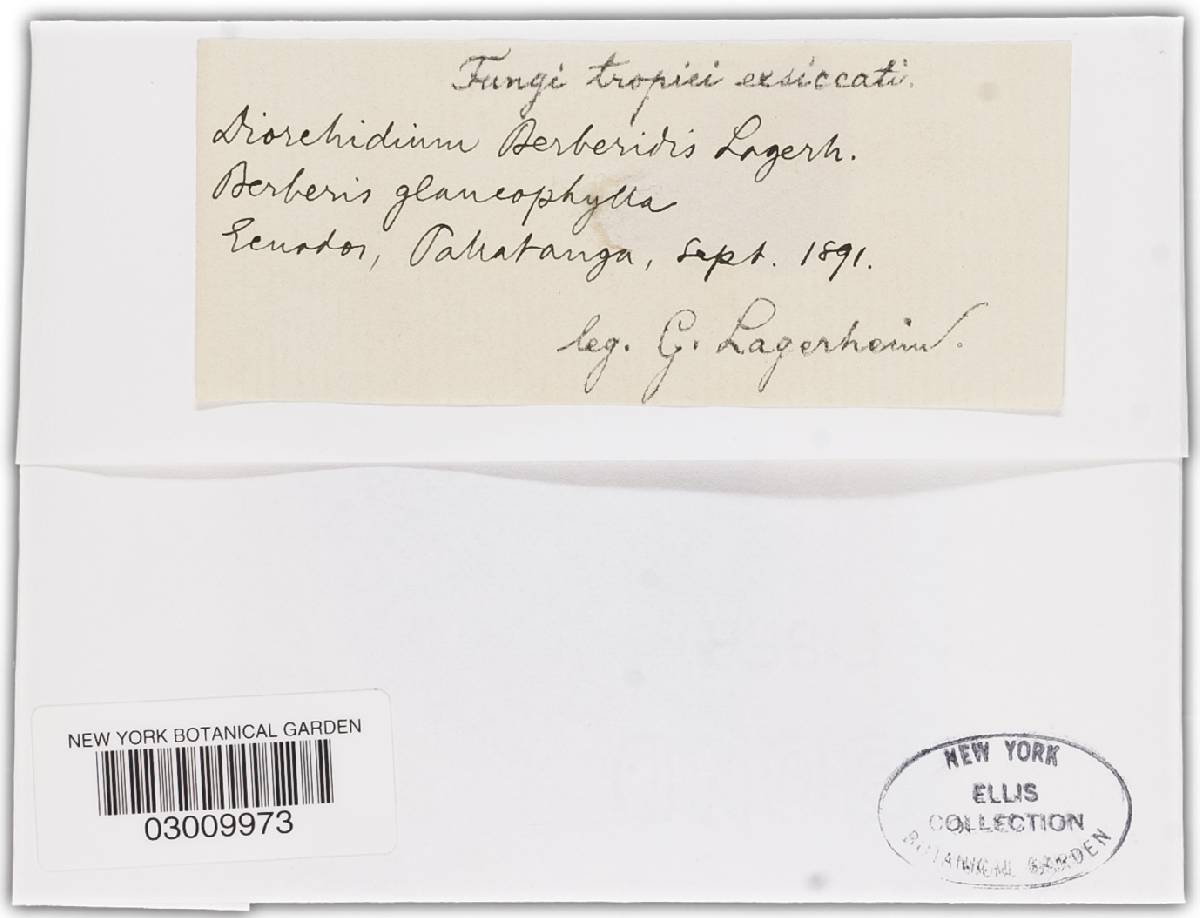 Fungi tropici exsiccati.
Diorchidium Berberidis Lagerh.
Berberis glaucophylla
Ecuador, Pallatanga, Sept. 1891.
leg. G. Lagerheim.
NEW YORK BOTANICAL GARDEN
03009973
NEW YORK
ELLIS
COLLECTION
BOTANICAL GARDEN